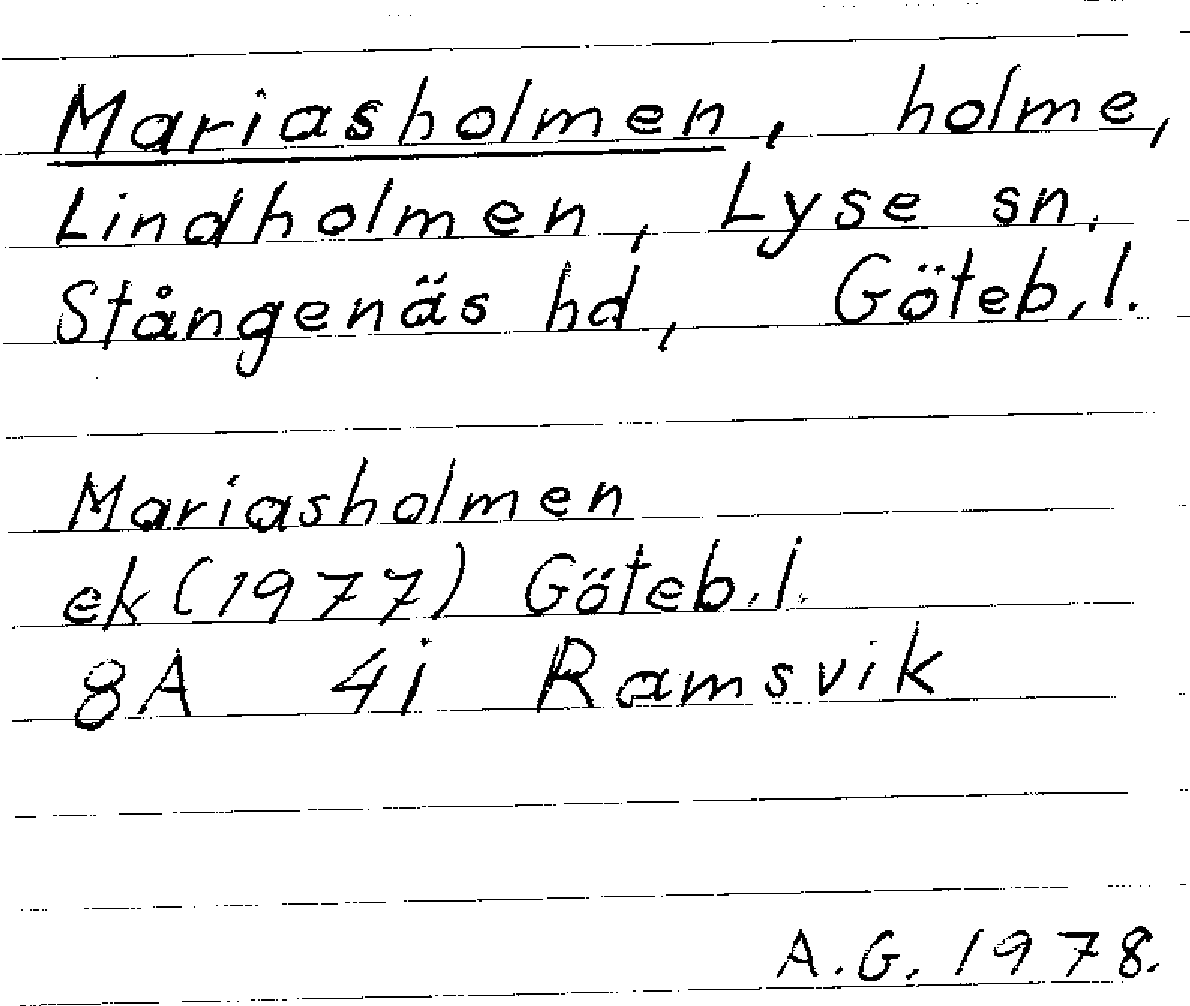 Mariasholmen, holme,
Lindholmen, Lyse sn.
Stångenäs hd, Göteb.l.
Mariasholmen
ek (1977) Göteb.l.
8A 4i Ramsvik
A.G. 1978.